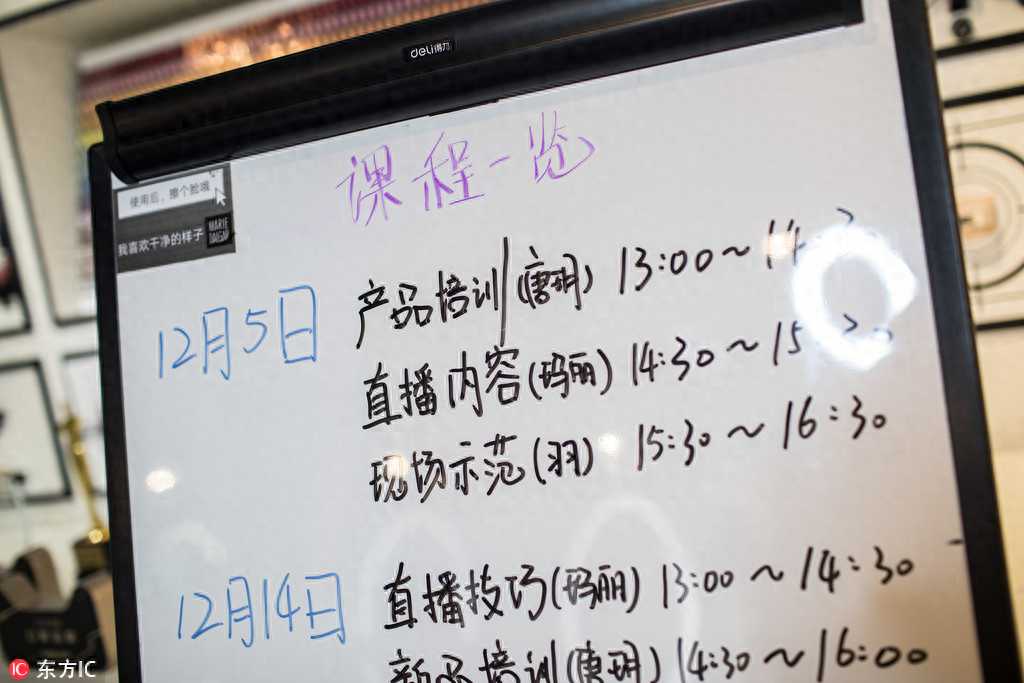 deli得力
课程一览
使用后，擦个脸哦
我喜欢干净的样子
MARIE DALGAR
12月5日 产品培训(唐玥) 13:00~14:30
直播内容(玛丽) 14:30~15:30
现场示范(羽) 15:30~16:30
12月14日 直播技巧(玛丽) 13:00~14:30
新品培训(唐玥) 14:30~16:00
IC 东方IC